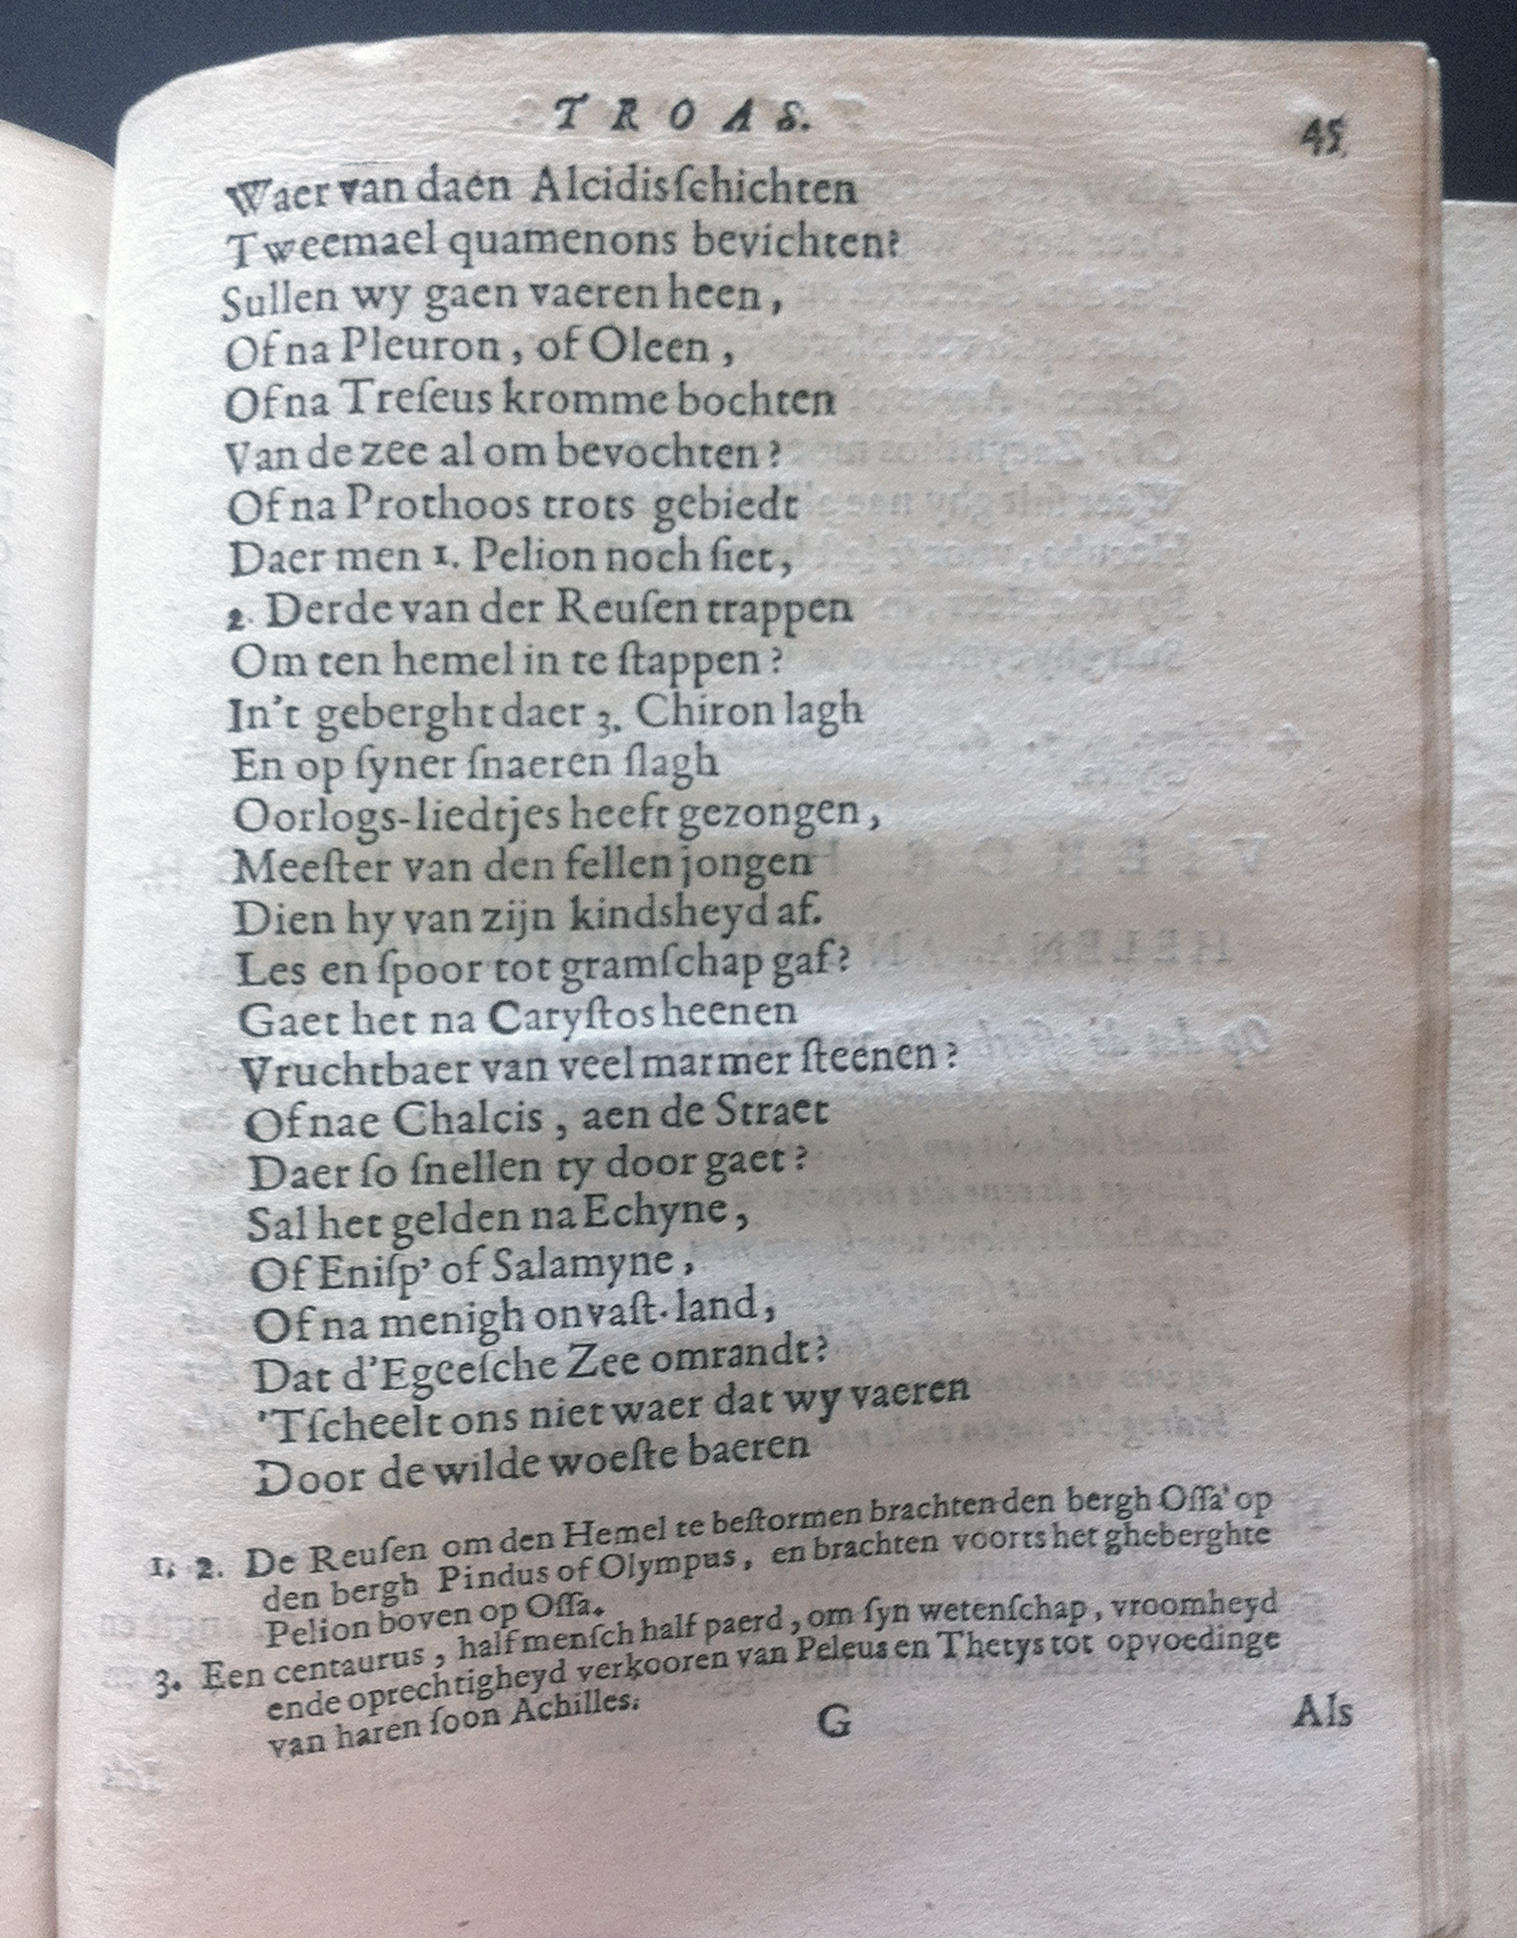 TROAS. 45.
Waer van daen Alcidis ſchichten
Tweemael quamen ons bevichten?
Sullen wy gaen vaeren heen,
Of na Pleuron, of Oleen,
Of na Treſeus kromme bochten
Van de zee al om bevochten?
Of na Prothoos trots gebiedt
Daer men 1. Pelion noch ſiet,
2. Derde van der Reuſen trappen
Om ten hemel in te ſtappen?
In't geberght daer 3. Chiron lagh
En op ſyner ſnaeren ſlagh
Oorlogs-liedtjes heeft gezongen,
Meeſter van den fellen jongen
Dien hy van zijn kindsheyd af.
Les en ſpoor tot gramſchap gaf?
Gaet het na Caryſtos heenen
Vruchtbaer van veel marmer ſteenen?
Of nae Chalcis, aen de Straet
Daer ſo ſnellen ty door gaet?
Sal het gelden na Echyne,
Of Eniſp' of Salamyne,
Of na menigh onvaſt-land,
Dat d'Egeeſche Zee omrandt?
'Tſcheelt ons niet waer dat wy vaeren
Door de wilde woeſte baeren
1. 2. De Reuſen om den Hemel te beſtormen brachten den bergh Oſſa' op
den bergh Pindus of Olympus, en brachten voorts het gheberghte
Pelion boven op Oſſa.
3. Een centaurus, half menſch half paerd, om ſyn wetenſchap, vroomheyd
ende oprechtigheyd verkooren van Peleus en Thetys tot opvoedinge
van haren ſoon Achilles.
G Als